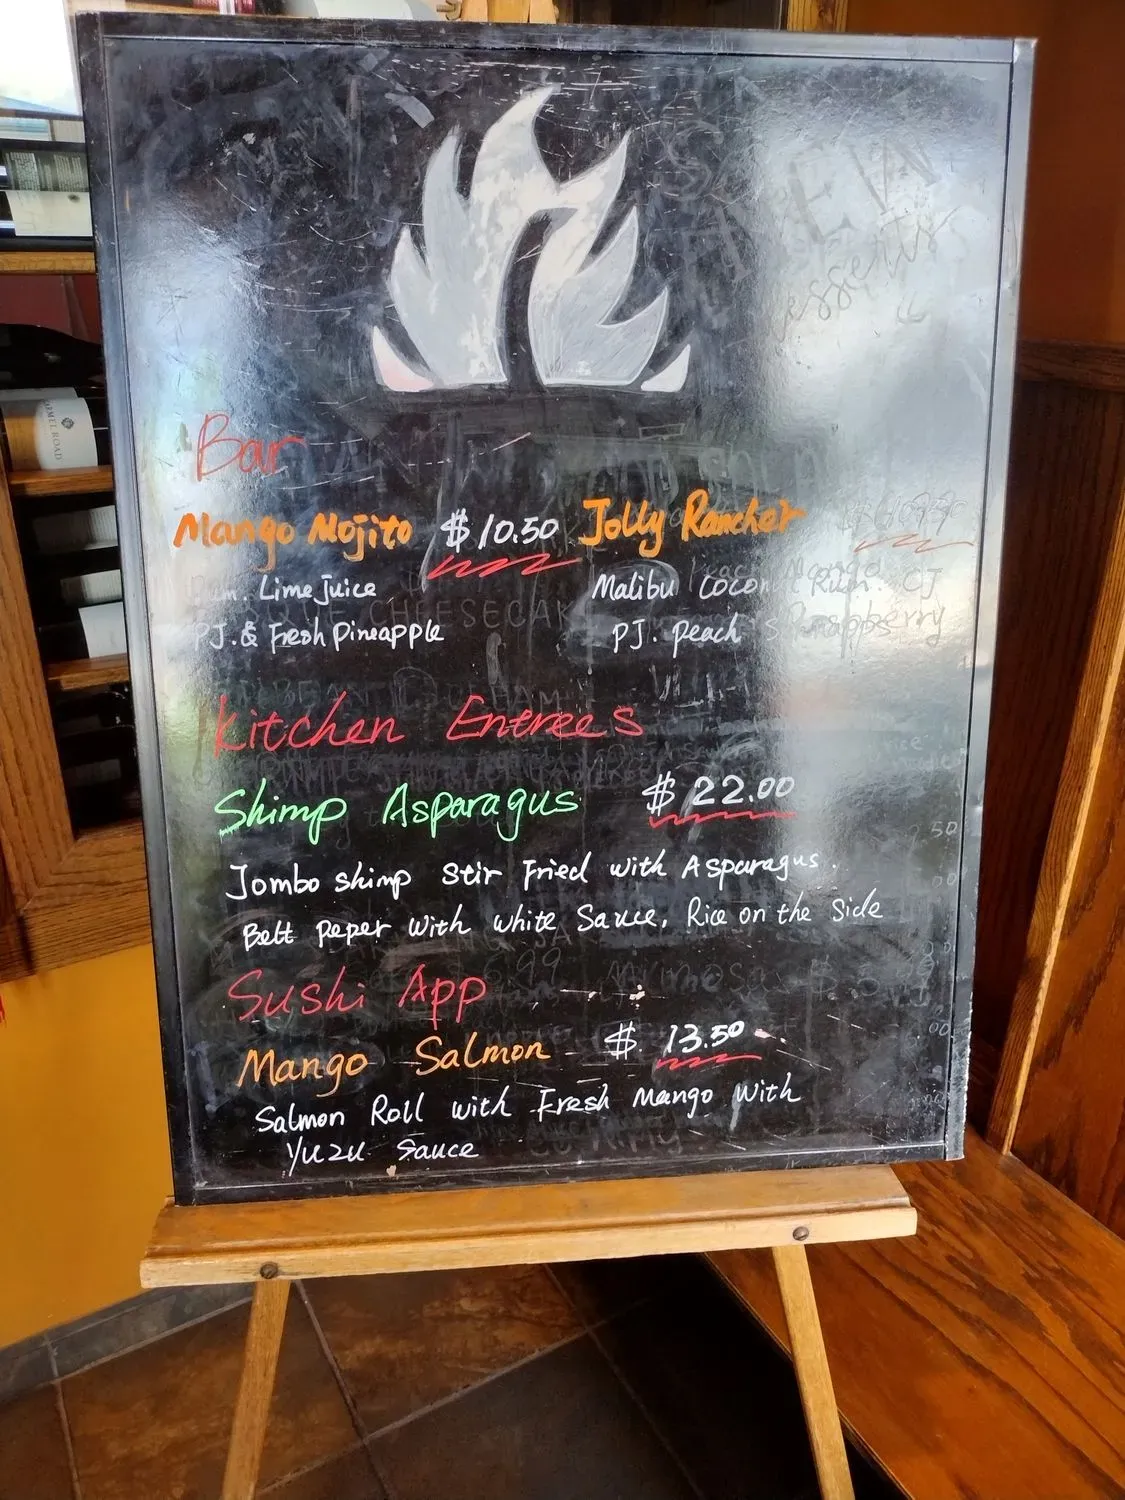 NEW
Desserts
Bar
Mango Mojito $10.50 Jolly Rancher
Rum. Lime Juice
Malibu Coconut Rum. CJ
PJ. & Fresh Pineapple
PJ. peach schnapps
Kitchen Entrees
Shimp Asparagus $22.00
Jombo shimp stir Fried with Asparagus.
Bett peper with white Sauce, Rice on the Side
Sushi App
Mango Salmon $ 13.50
Salmon Roll with Fresh Mango with
Yuzu Sauce
CARMEL ROAD